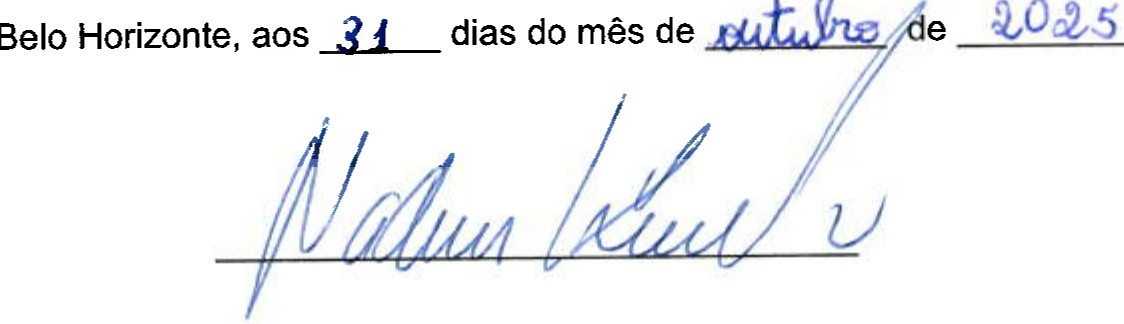 Belo Horizonte, aos 31 dias do mês de outubro de 2025